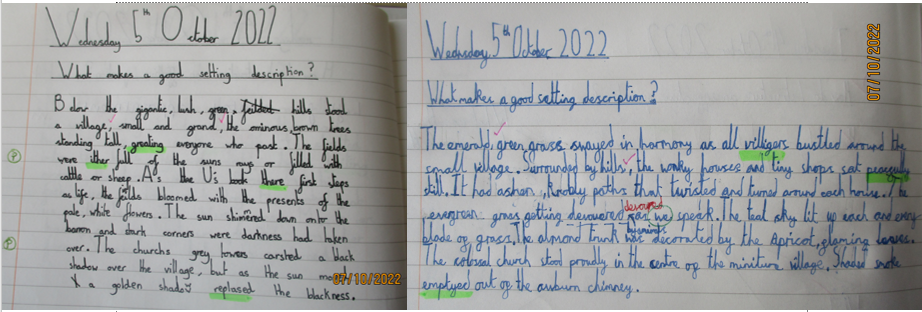 Wednesday 5th October 2022
What makes a good setting description?
Below the gigantic, lush, green, hills stood
a village, small and grand, the ominous, brown trees
standing tall, greating everyone who past. The fields
were ither full of the suns rays or filled with
cattle or sheep. As the took there first steps
as life, the feilds bloomed with the presents of the
pale, white flowers. The sun shimered down onto the
barron and dark corners were darkness had taken
over. The churchs grey towers carsted a black
shadow over the village, but as the sun
a golden shadow replased the blackness.
07/10/2022
Wednesday 5th October 2022
What makes a good setting description?
The emerald, green grass swayed in harmony as all villigers bustled around the
small village. Surrounded by hills, the wonky houses and tiny shops sat
still. It had ashen, knobly paths that twisted and turned around each house. The
evergrean grass getting devowered devoured as we speak. The teal sky lit up each and every
blade of grass. The almond trunk was decorated by the Apricot, leaves.
The colossal church stood proudly in the centre of the miniture village. Shaded smoke
emptyed out of the auburn chimney.
07/10/2022